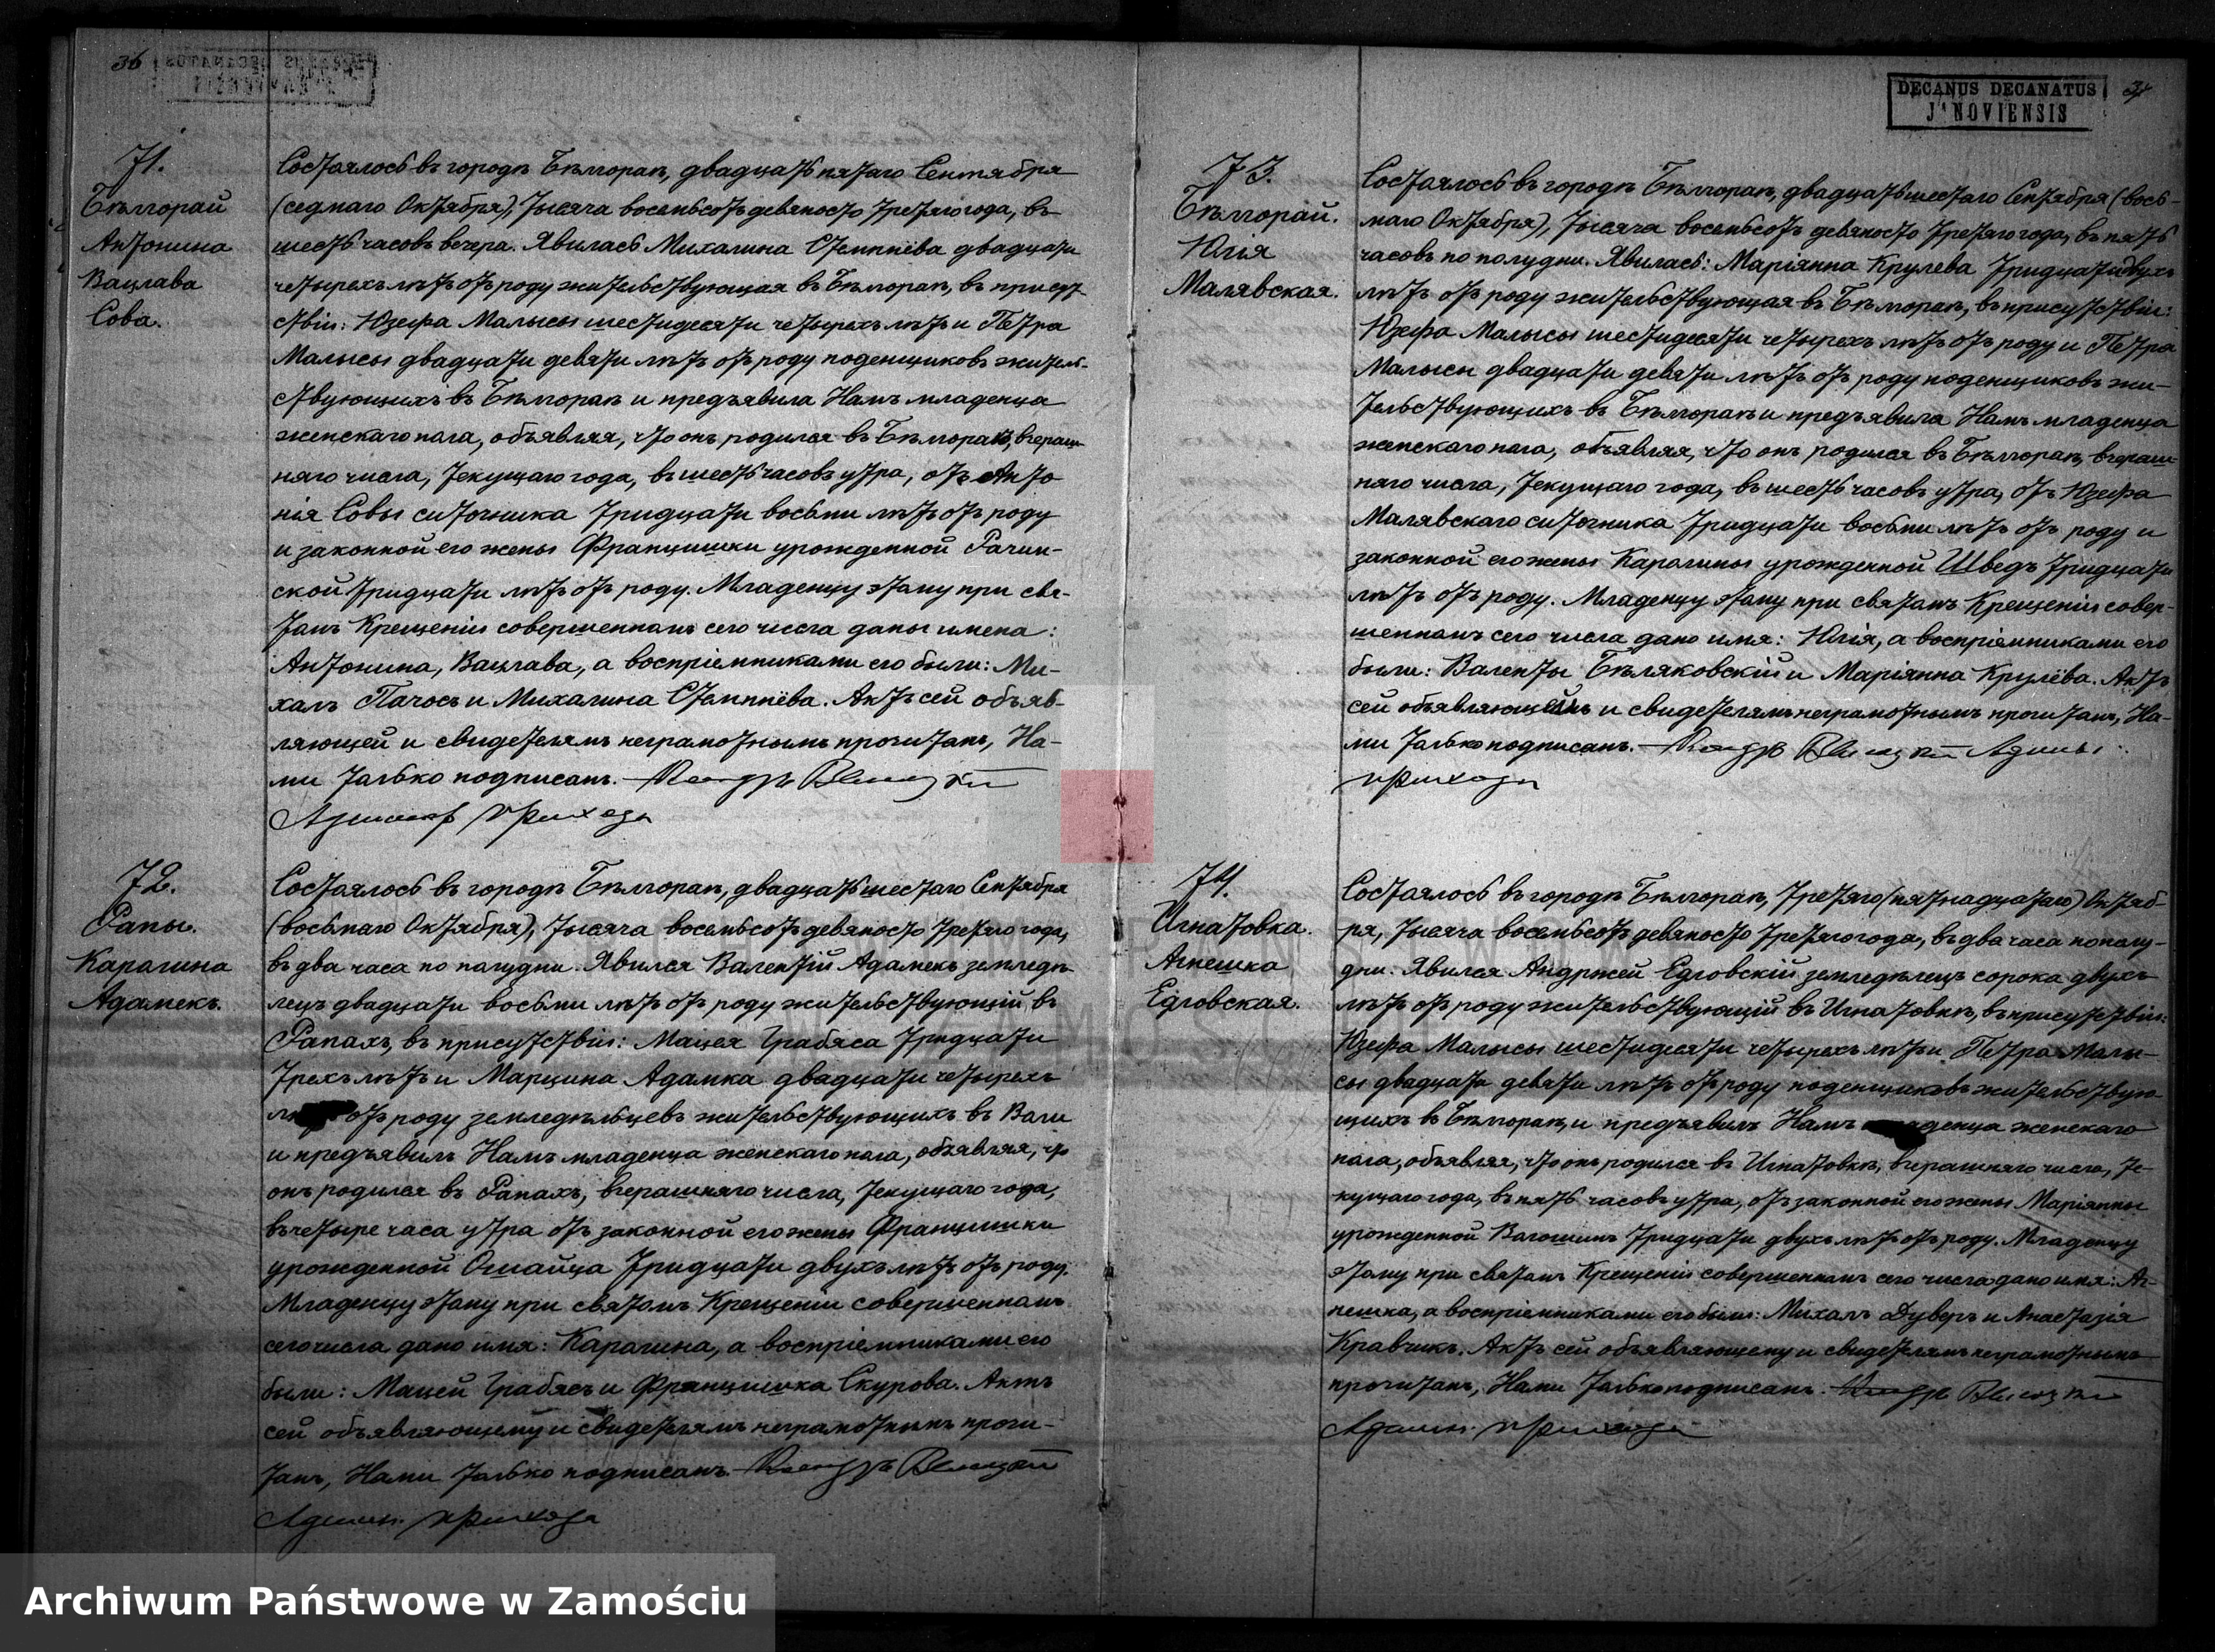 36
71.
Бѣлгорай
Антонина
Вацлава
Сова.
Состоялось въ городѣ Бѣлгораѣ, двадцать пятаго Сентября
(седмаго Октября), тысяча восемьсотъ девяносто третяго года, въ
шесть часовъ вечера. Явилась Михалина Стемпнёва двадцати
четырехъ лѣтъ отъ роду жительствующая въ Бѣлгораѣ, въ присут-
ствіи: Юзефа Малысы шестидесяти четырехъ лѣтъ и Петра
Малысы двадцати девяти лѣтъ отъ роду поденщиковъ житель-
ствующихъ въ Бѣлгораѣ и предъявила Намъ младенца
женскаго пола, объявляя, что онъ родился въ Бѣлгораѣ, вчераш-
няго числа, текущаго года, въ шесть часовъ утра, отъ Анто-
нія Совы ситочника тридцати восьми лѣтъ отъ роду
и законной его жены Францишки урожденной Рачин-
ской тридцати лѣтъ отъ роду. Младенцу этому при свя-
томъ Крещеніи совершенномъ сего числа даны имена:
Антонина, Вацлава, а воспріемниками его были: Ми-
халъ Пачосъ и Михалина Стемпнёва. Актъ сей объяв-
ляющей и свидетелямъ неграмотнымъ прочитанъ, На-
ми только подписанъ.
прихода
72.
Рапы.
Каролина
Адамекъ.
Состоялось въ городѣ Бѣлгораѣ, двадцать шестаго Сентября
(восьмаго Октября), тысяча восемьсотъ девяносто третяго года,
въ два часа по полудни. Явился Валентій Адамекъ земледѣ-
лецъ двадцати восьми лѣтъ отъ роду жительствующій въ
Рапахъ, въ присутствіи: Мацея Грабяса тридцати
трехъ лѣтъ и Марцина Адамка двадцати четырехъ
отъ роду земледѣльцевъ жительствующихъ въ Воли
и предъявилъ Намъ младенца женскаго пола, объявляя, что
онъ родился въ Рапахъ, вчерашняго числа, текущаго года,
въ четыре часа утра отъ законной его жены Францишки
урожденной Ошайца тридцати двухъ лѣтъ отъ роду.
Младенцу этому при святомъ Крещеніи совершенномъ
сего числа дано имя: Каролина, а воспріемниками его
были: Мацей Грабясъ и Францишка Скурова. Актъ
сей объявляющему и свидетелямъ неграмотнымъ прочи-
танъ, Нами только подписанъ
Админ. прихода
DECANUS DECANATUS
J'NOVIENSIS
37
73.
Бѣлгорай.
Юлія
Малявская.
Состоялось въ городѣ Бѣлгораѣ, двадцать шестаго Сентября (вось-
маго Октября), тысяча восемьсотъ девяносто третяго года, въ пять
часовъ по полудни. Явилась: Маріянна Крулева тридцати двухъ
лѣтъ отъ роду жительствующая въ Бѣлгораѣ, въ присутствіи:
Юзефа Малысы шестидесяти четырехъ лѣтъ отъ роду и Петра
Малысы двадцати девяти лѣтъ отъ роду поденщиковъ жи-
тельствующихъ въ Бѣлгораѣ и предъявила Намъ младенца
женскаго пола, объявляя, что онъ родился въ Бѣлгораѣ, вчераш-
няго числа, текущаго года, въ шесть часовъ утра, отъ Юзефа
Малявскаго ситочника тридцати восьми лѣтъ отъ роду и
законной его жены Каролины урожденной Шведъ тридцати
лѣтъ отъ роду. Младенцу этому при святомъ Крещеніи совер-
шенномъ сего числа дано имя: Юлія, а воспріемниками его
были: Валенты Бѣляковскій и Маріянна Крулёва. Актъ
сей и свидетелямъ неграмотнымъ прочитанъ, На-
ми только подписанъ.
прихода
74.
Игнатовка.
Агнешка
Едловская.
Состоялось въ городѣ Бѣлгораѣ, третяго (пятнадцатаго) Октяб-
ря, тысяча восемьсотъ девяносто третяго года, въ два часа по полу-
дни. Явился Андржей Едловскій земледѣлецъ сорока двухъ
лѣтъ отъ роду жительствующій въ Игнатовкѣ, въ присутствіи:
Юзефа Малысы шестидесяти четырехъ лѣтъ и Петра Малы-
сы двадцати девяти лѣтъ отъ роду поденщиковъ жительствую-
щихъ въ Бѣлгораѣ, и предъявилъ Намъ младенца женскаго
пола, объявляя, что онъ родился въ Игнатовкѣ, вчерашняго числа, те-
кущаго года, въ пять часовъ утра, отъ законной его жены Маріянны
урожденной Волошинъ тридцати двухъ лѣтъ отъ роду. Младенцу
этому при святомъ Крещеніи совершенномъ сего числа дано имя: Аг-
нешка, а воспріемниками его были: Михалъ Дуверъ и Анастазія
Кравчикъ. Актъ сей объявляющему и свидетелямъ неграмотнымъ
прочитанъ, Нами только подписанъ.
Админ. прихода
Archiwum Państwowe w Zamościu